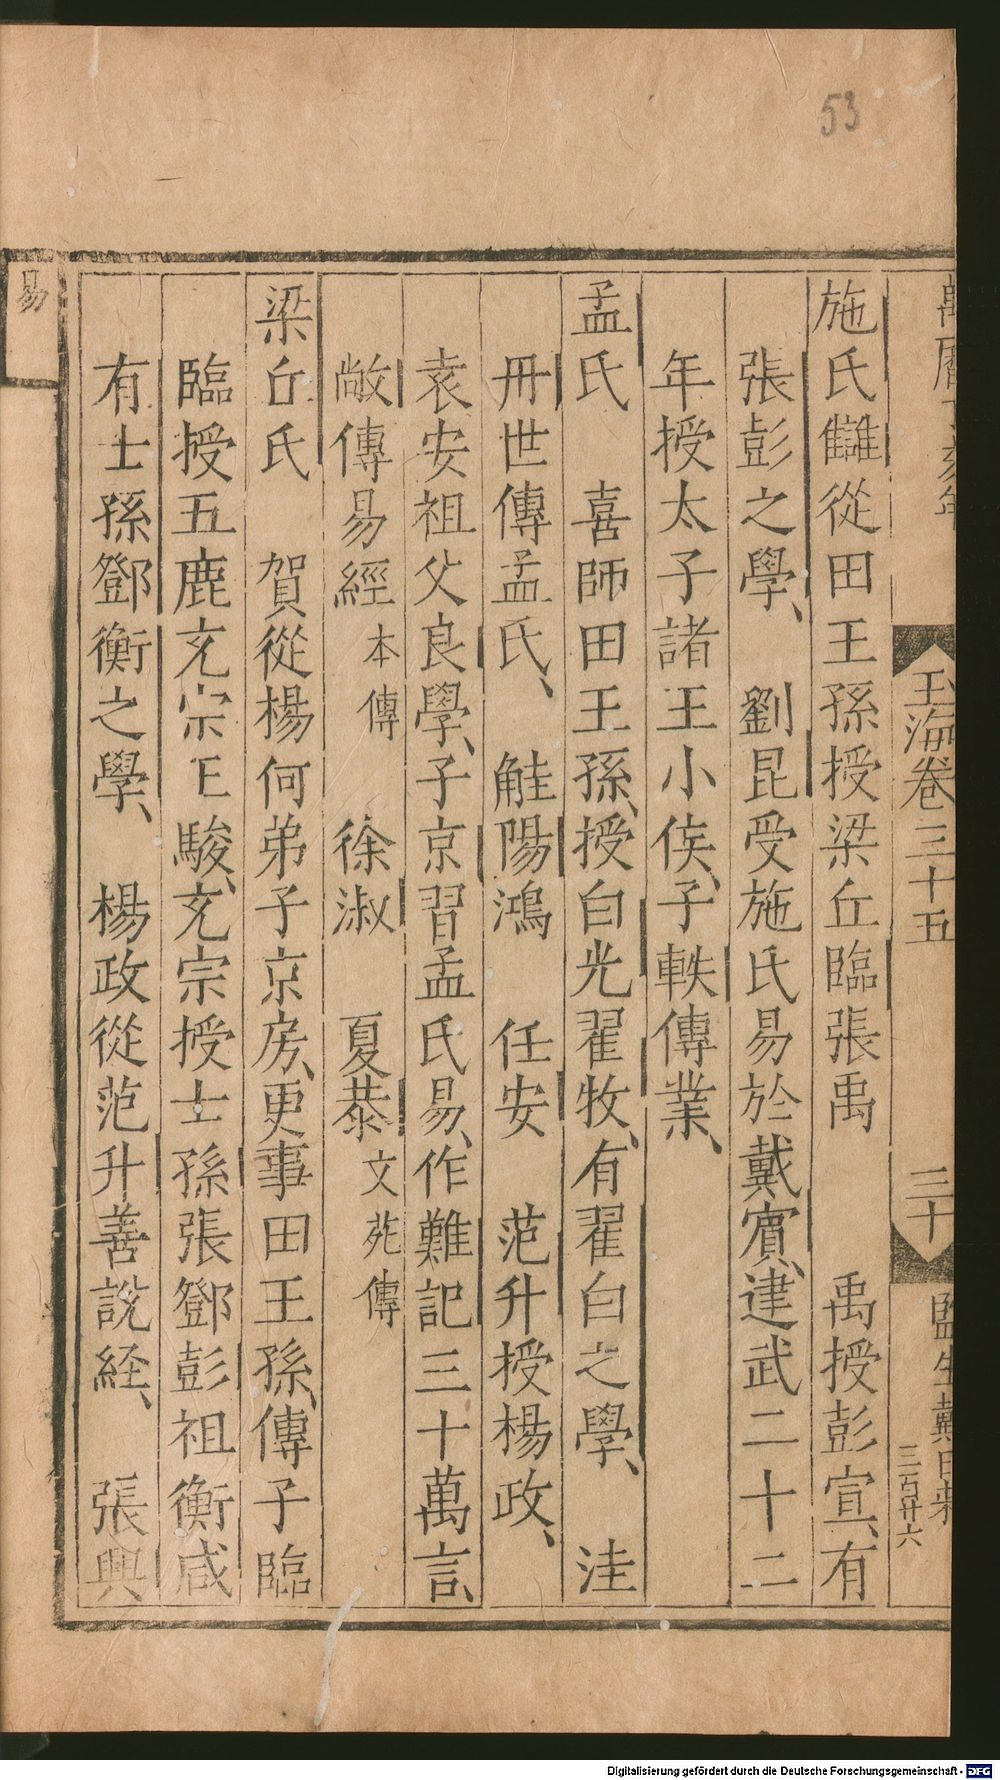 53
玉海卷三十五
三十
三百廿六
施氏讎從田王孫授梁丘臨張禹　禹授彭宣、有
張彭之學、　劉昆受施氏易於戴賔、建武二十二
年授太子諸王小侯、子軼傳業、
孟氏　喜師田王孫、授白光翟牧、有翟白之學、　洼
丹世傳孟氏、　觟陽鴻　任安　范升授楊政、
袁安祖父良學、子京習孟氏易、作難記三十萬言、
敞傳易經本傳　徐淑　夏恭文苑傳
梁丘氏　賀從楊何弟子京房、更事田王孫、傳子臨
臨授五鹿充宗王駿、充宗授士孫張鄧彭祖衡咸
有士孫鄧衡之學、　楊政從范升善說経、　張興
易
Digitalisierung gefördert durch die Deutsche Forschungsgemeinschaft - DFG